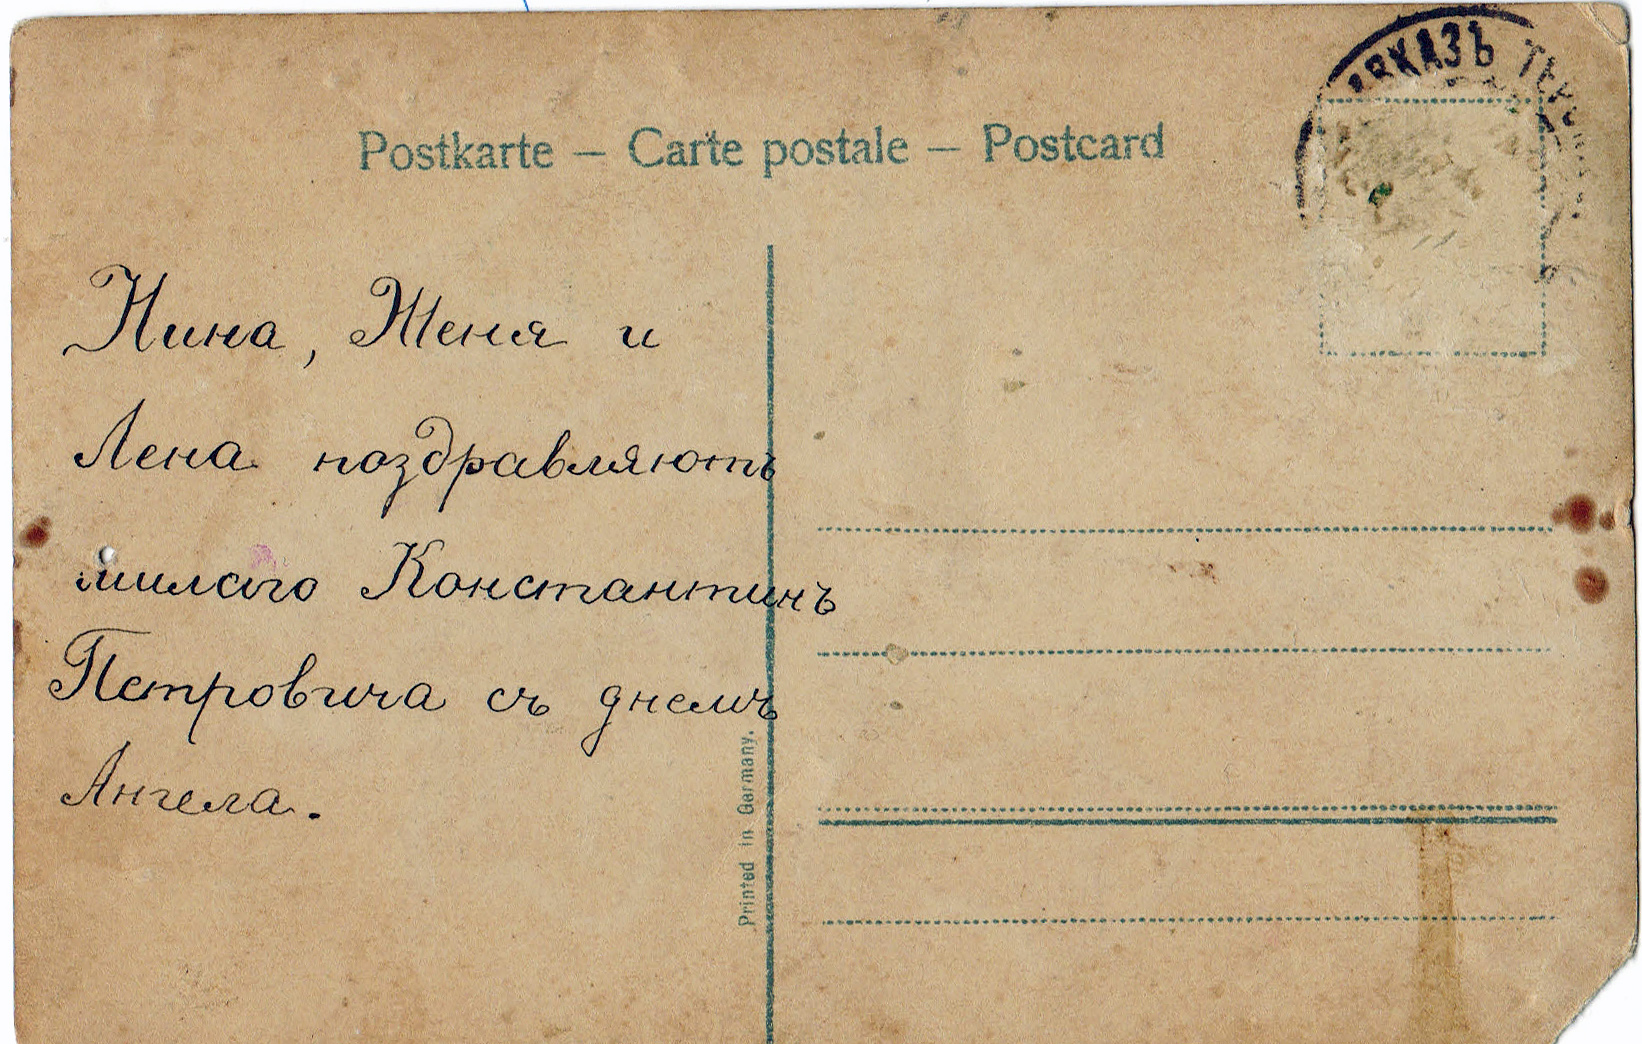 Postkarte — Carte postale — Postcard
Нина, Женя и
Лена поздравляютъ
милаго Константинъ
Петровича съ днемъ
Ангела.
Printed in Germany.